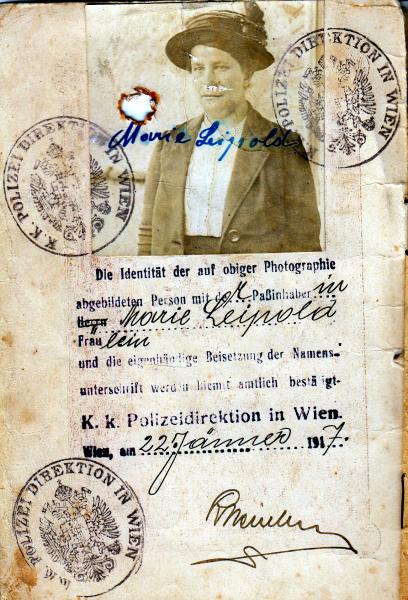 K. K. POLIZEI DIREKTION IN WIEN
K. K. POLIZEI DIREKTION IN WIEN
Marie Leipold
Die Identität der auf obiger Photographie
abgebildeten Person mit der Paßinhaberin
Herrn Marie Leipold
Fräulein
und die eigenhändige Beisetzung der Namens-
unterschrift werden hiemit amtlich bestätigt.
K. k. Polizeidirektion in Wien.
Wien, am 22. Jänner 1917.
K. K. POLIZEI DIREKTION IN WIEN